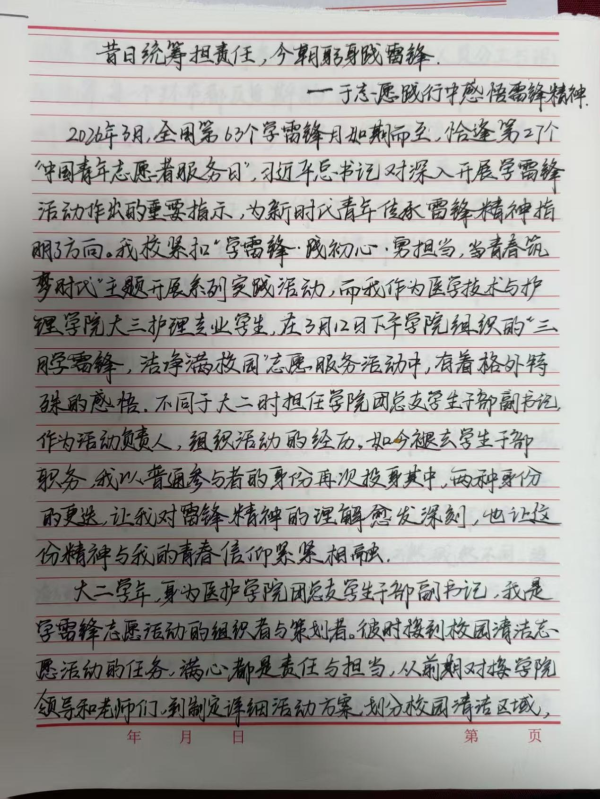 昔日统筹担责任，今朝躬身践雷锋．
——于志愿践行中感悟雷锋精神．
2026年3月，全国第63个学雷锋月如期而至，恰逢第27个
“中国青年志愿者服务日”，习近平总书记对深入开展学雷锋
活动作出的重要指示，为新时代青年传承雷锋精神指
明了方向。我校紧扣“学雷锋·践初心·勇担当，当青春筑
梦时代”主题开展系列实践活动，而我作为医学技术与护
理学院大三护理专业学生，在3月12日下午学院组织的“三
月学雷锋，洁净满校园”志愿服务活动中，有着格外特
殊的感悟．不同于大二时担任学院团总支学生干部副书记，
作为活动负责人，组织活动的经历．如今褪去学生干部
职务，我以普通参与者的身份再次投身其中，两种身份
的更迭，让我对雷锋精神的理解愈发深刻，也让这
份精神与我的青春信仰紧紧相融．
大二学年，身为医护学院团总支学生干部副书记，我是
学雷锋志愿活动的组织者与策划者。彼时接到校园清洁志
愿活动的任务，满心都是责任与担当，从前期对接学院
领导和老师们，到制定详细活动方案，划分校园清洁区域，
年 月 日
第 页